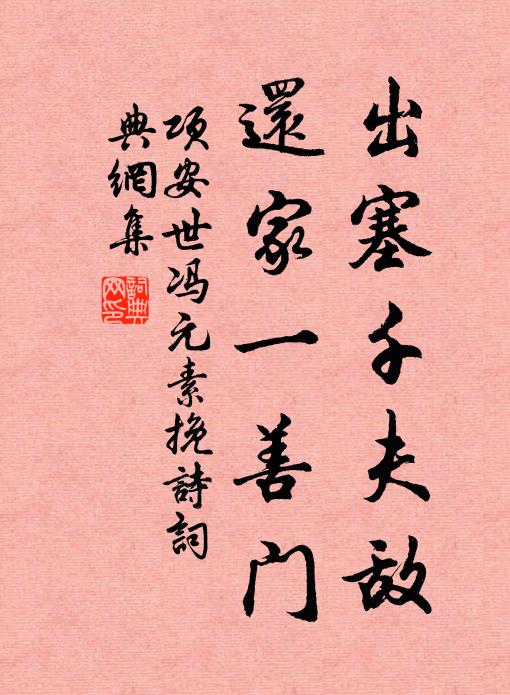 出塞千夫敌
還家一善门
项安世冯元素挽詩詞
典網集
詞典
网印